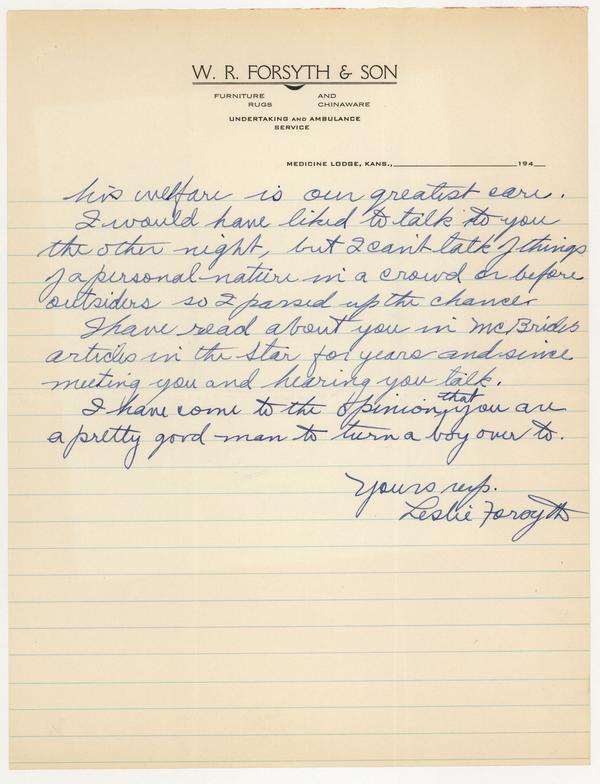 W. R. FORSYTH & SON
FURNITURE AND
RUGS CHINAWARE
UNDERTAKING AND AMBULANCE
SERVICE
MEDICINE LODGE, KANS., 194
his welfare is our greatest care.
I would have liked to talk to you
the other night, but I can't talk of things
of a personal nature in a crowd or before
outsiders so I passed up the chance.
I have read about you in McBrides
articles in the Star for years and since
meeting you and hearing you talk.
I have come to the opinion that you are
a pretty good man to turn a boy over to.
Yours resp.
Leslie Forsyth